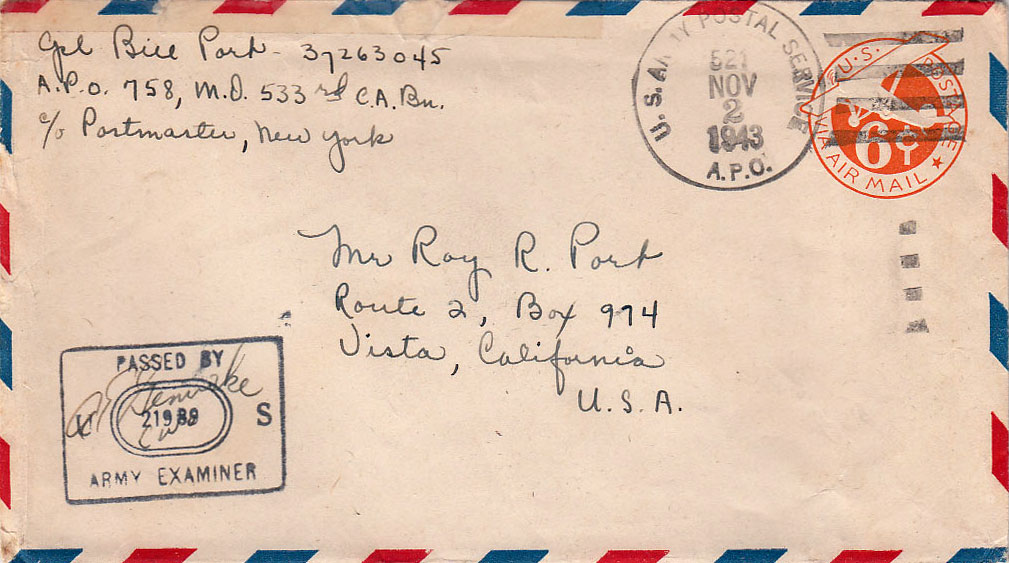 Cpl Bill Port - 37263045
A.P.O. 758, M.D. 533rd C.A. Bn.
c/o Postmaster, New York
U.S. ARMY POSTAL SERVICE
NOV
2
1943
A.P.O.
U.S. POSTAGE
6¢
VIA AIR MAIL
Mr Roy R. Port
Route 2, Box 974
Vista, California
U.S.A.
PASSED BY
U S
ARMY EXAMINER